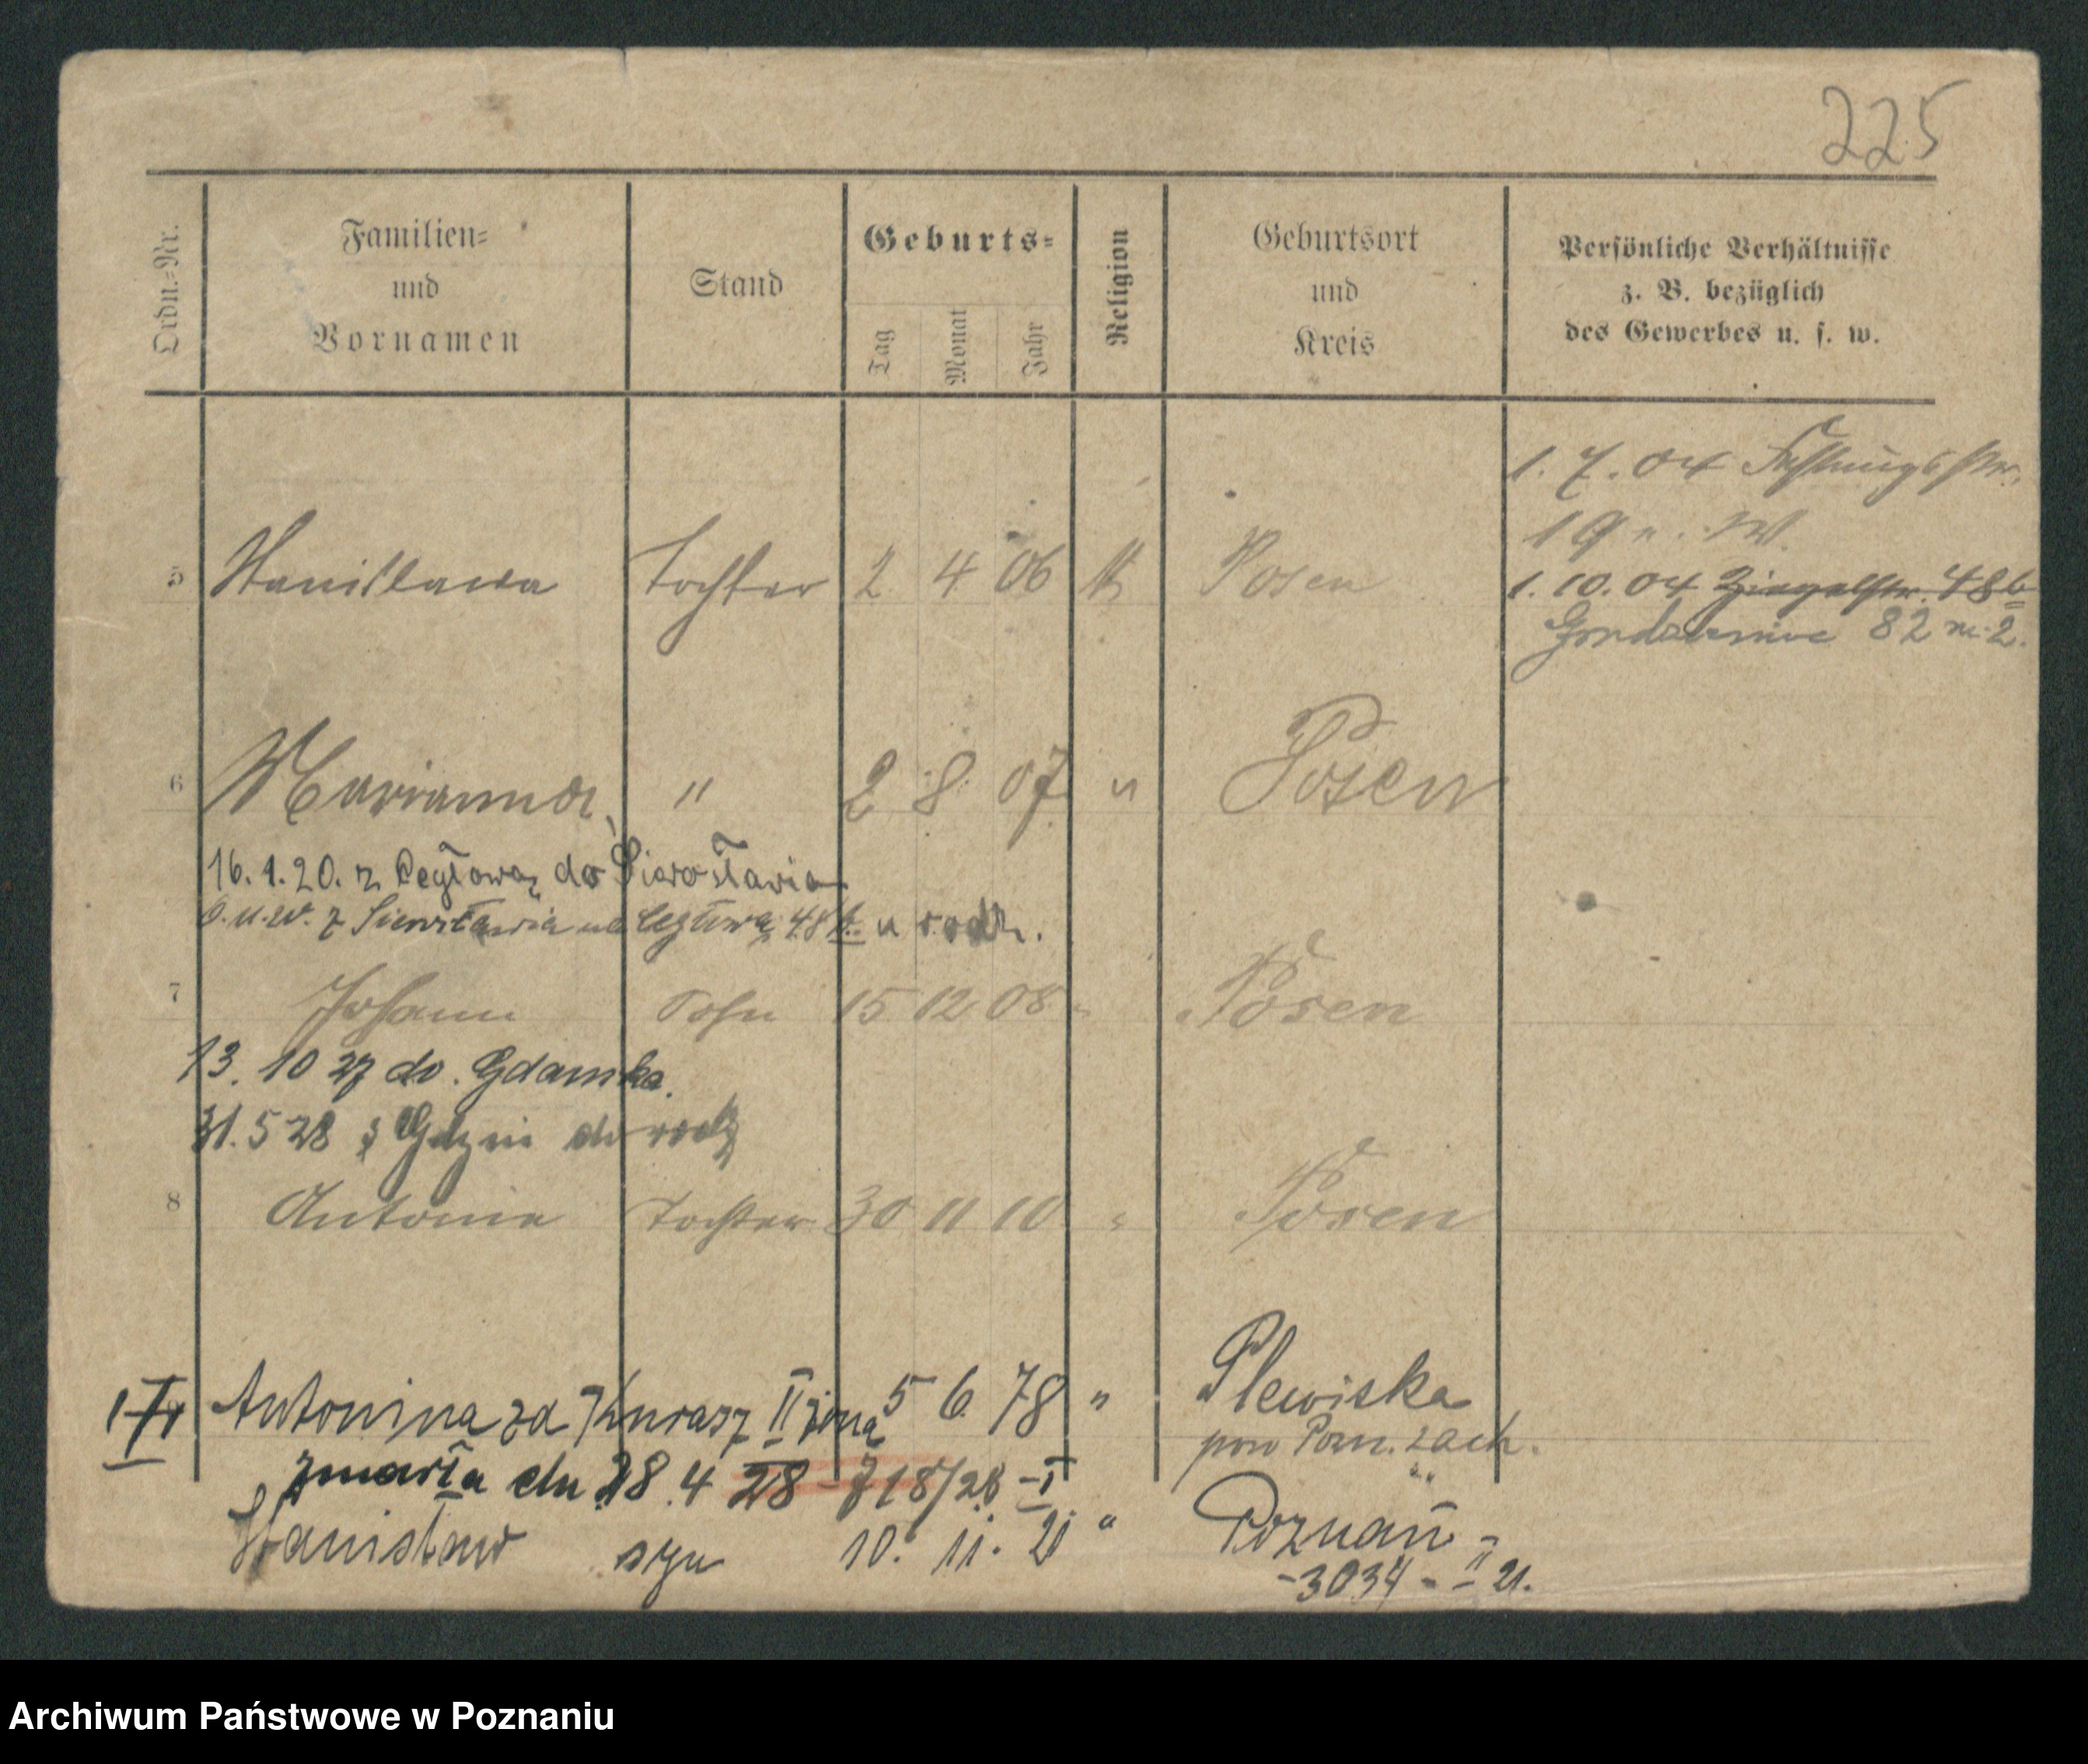 225
Ordn.=Nr.
Familien=
und
Vornamen
Stand
Geburts=
Tag
Monat
Jahr
Religion
Geburtsort
und
Kreis
Persönliche Verhältnisse
z. B. bezüglich
des Gewerbes u. s. w.
1. 7. 04 Festungsstr.
19 n. W.
5 Stanislawa Tochter 2 4 06 k Posen
1. 10. 04 Ziegelstr. 48b
82 m. 2.
6 Marianna " 2 8 07 " Posen
16. 1. 20. z Cegłowa do Sierosławia
z Sierosławia na Cegłową 48 b. u rodz.
7 Johann Sohn 15 12 08 " Posen
13. 10 27 do Gdańska.
31. 5 28 z Gdyni do rodz
8 Antonie Tochter 30 11 10 " Posen
Antonina zd II żona 5 6. 78 " Plewiska
pow Pozn. zach.
zmarła dn 28. 4 28 - 718/28 - I
Stanisław syn 10. 11. 21 " Poznań -
-3034 - II 21.
Archiwum Państwowe w Poznaniu